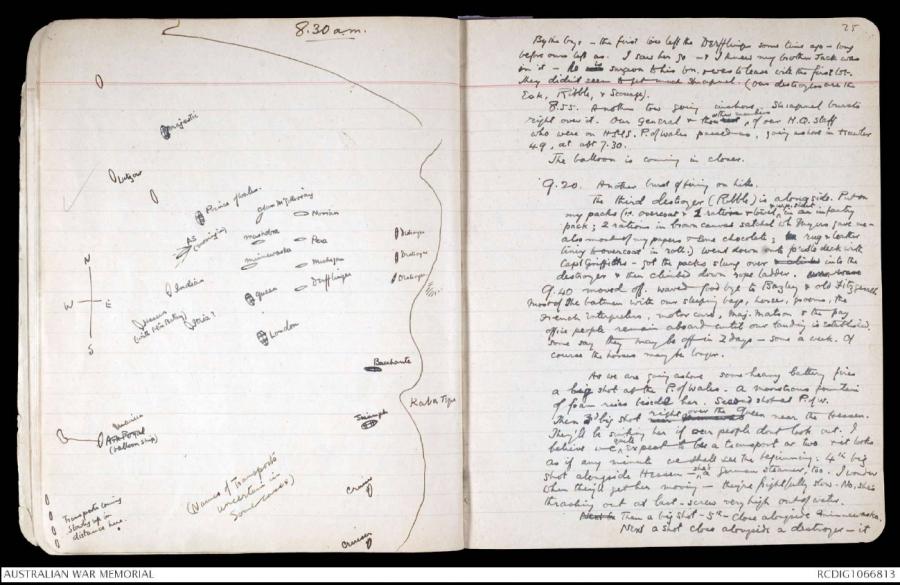 8.30 a.m.
Majestic
Lutzow
Prince of Wales.
Novian
Pera
Minnewaska
Michigan
Derfflinger
Indian
Queen
London
Destroyer
Destroyer
Destroyer
N
W
E
S
Bacchante
Triumph
Kaba Tepe
(balloon ship)
Transports coming
slowly up in
distance here.
(Names of Transports
uncertain in
some cases)
Cruiser
Cruiser
25
By the bye - the first tow left the Derfflinger some time ago - long
before ours left us. I saw her go - & I knew my brother Jack was
on it - he is surgeon to his bn. & was to leave with the first lot.
They didn't seem to get much shrapnel. (Our destroyers are the
Esk, Ribble, & Scourge).
8.55. Another tow going inshore. Shrapnel bursts
right over it. Our General & other members of our H.Q. Staff
who were on H.M.S. P. of Wales, going ashore in
49, at abt 7.30.
The balloon is coming in closer.
9.20. Another burst of firing on hills.
The third destroyer (Ribble) is alongside. Put on
my packs (in an infantry
pack; 2 rations in brown canvas satchel wh Myers gave me -
also most of my papers & some chocolate; rug & leather
lining & overcoat in roll;) went down to deck with
Capt Griffiths - got the packs slung over into the
destroyer & then climbed down rope ladder.
9.40 moved off. Waved goodbye to Bazley & old Fitzgerald
Most of the batmen with our sleeping bags, horses, grooms, the
French interpreters, motor cars, Maj. Mation & the pay
office people remain aboard until our landing is established.
Some say they may be off in 2 days - some a week. Of
course the horses may be longer.
As we are going ashore some heavy battery fires
a big shot at the P. of Wales. A monstrous fountain
of foam rises beside her. Second shot at P. of W.
Then 3d big shot right over the Queen near the Hessen.
They'll be sinking her if our people dont look out. I
believe we quite expect to lose a transport or two & it looks
as if any minute we shall see the beginning: 4th big
shot alongside Hessen - she's a German steamer, too. I wonder
when they'll get her moving - they're frightfully slow. No, she's
thrashing out at last - screw very high out of water.
Then a big shot - 5th - close alongside Minnewaska.
Next a shot close alongside a destroyer - it
AUSTRALIAN WAR MEMORIAL
RCDIG1066813